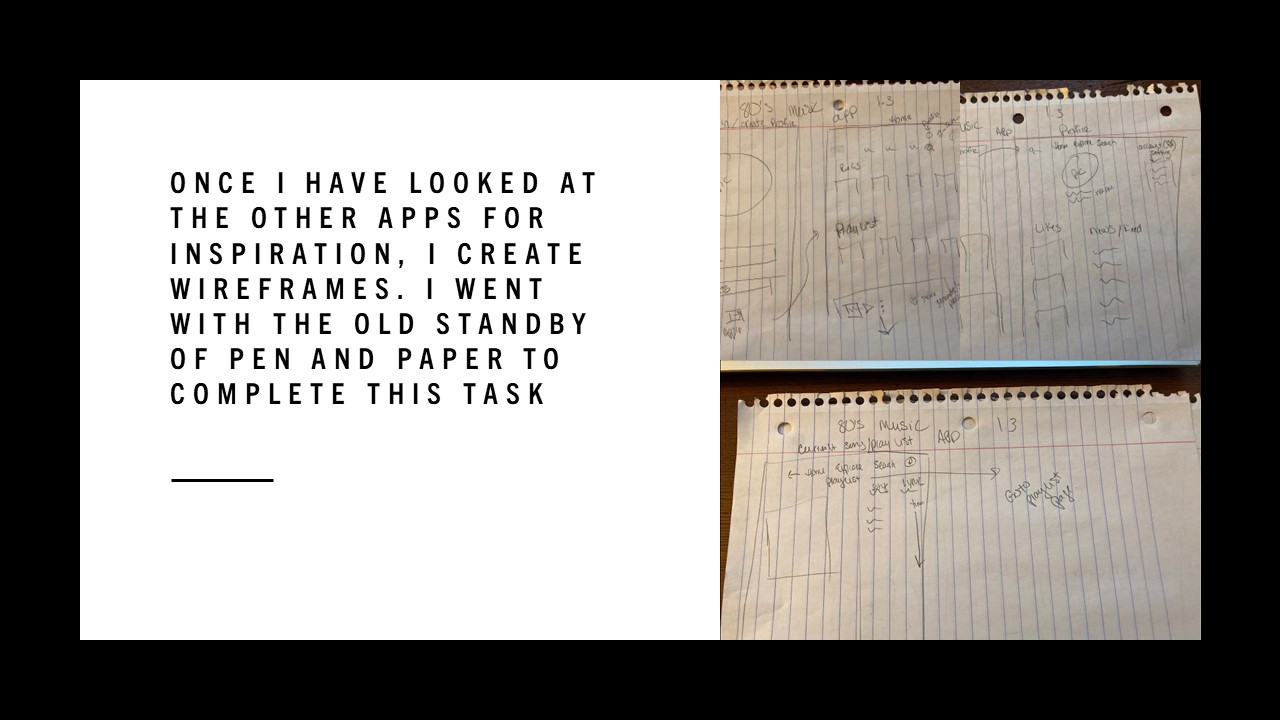 ONCE I HAVE LOOKED AT
THE OTHER APPS FOR
INSPIRATION, I CREATE
WIREFRAMES. I WENT
WITH THE OLD STANDBY
OF PEN AND PAPER TO
COMPLETE THIS TASK
80's Music app 1.3
Create Profile
Home
Playlist
1.3
App Profile
Home Explore Search
Pic
name
Likes News/Feed
80's Music App 1.3
Current song/play list
Home Explore Search
playlist
Go to
playlist
page